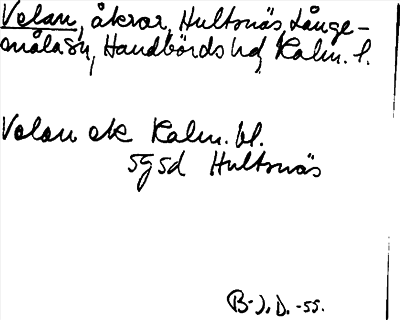 Velan, åkrar, Hultsnäs Långe-
måla sn, Handbörds hd, Kalm. l.
Velan ek Kalm. bl.
5g5d Hultsnäs
B-J. D. -55.